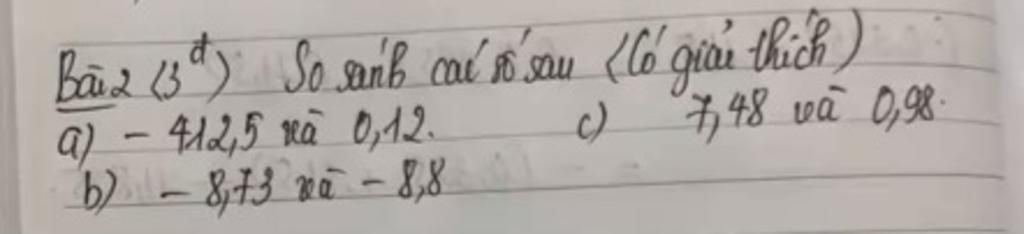 Bài 2 (3đ) So sánh các số sau (Có giải thích)
a) - 412,5 và 0,12. c) 7,48 và 0,98.
b) - 8,73 và - 8,8